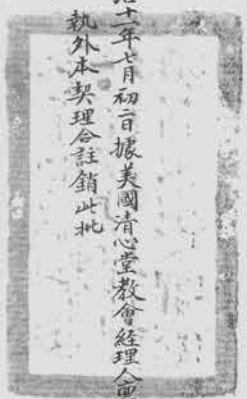 十一年七月初二日據美國清心堂教會經理人
執外本契理合註銷此批